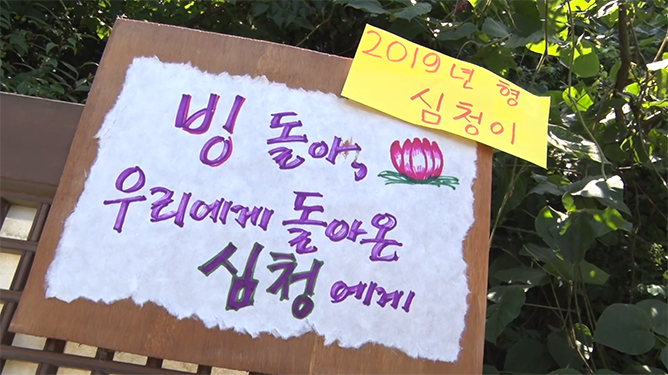 2019년 형
심청이
빙 돌아,
우리에게 돌아온
심청에게